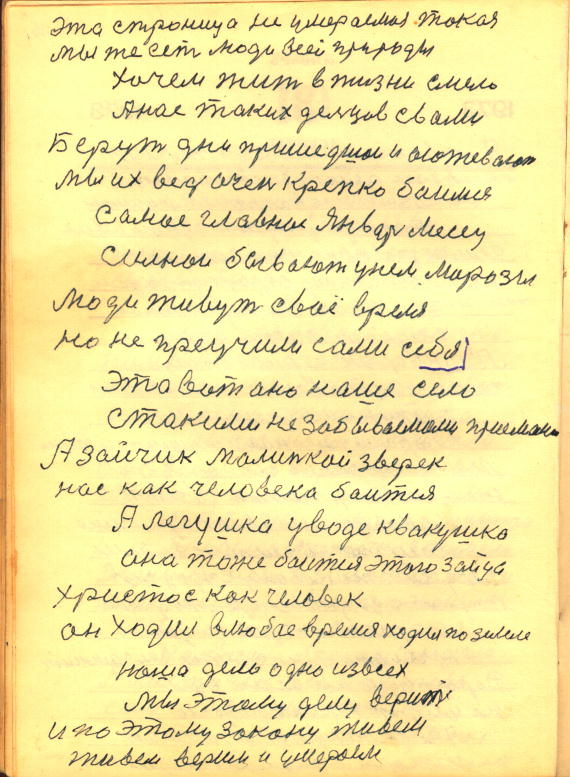 эта строница не умераемая токая
мы же сет люди всей природы
хочем жит в жизни смело
Анас таких делцов свами
Берут дни пришедшои и
мы их вед очен крепко баимся
Самое главное Январ месец
Силнои бывают унем Марозы
Люди живут своё время
но не преучили сами себя
Эта вот ано наше село
стакими незабываемоми приемами
А зайчик малинкой зверек
нас как человека баится
А легушка уводе квакушка
она тоже баится этого зайца
христос как человек
он ходил влюбае время ходил по земле
наша дело одно извсех
мы этому делу верим
и по этому закону живем
живем верим и умераем